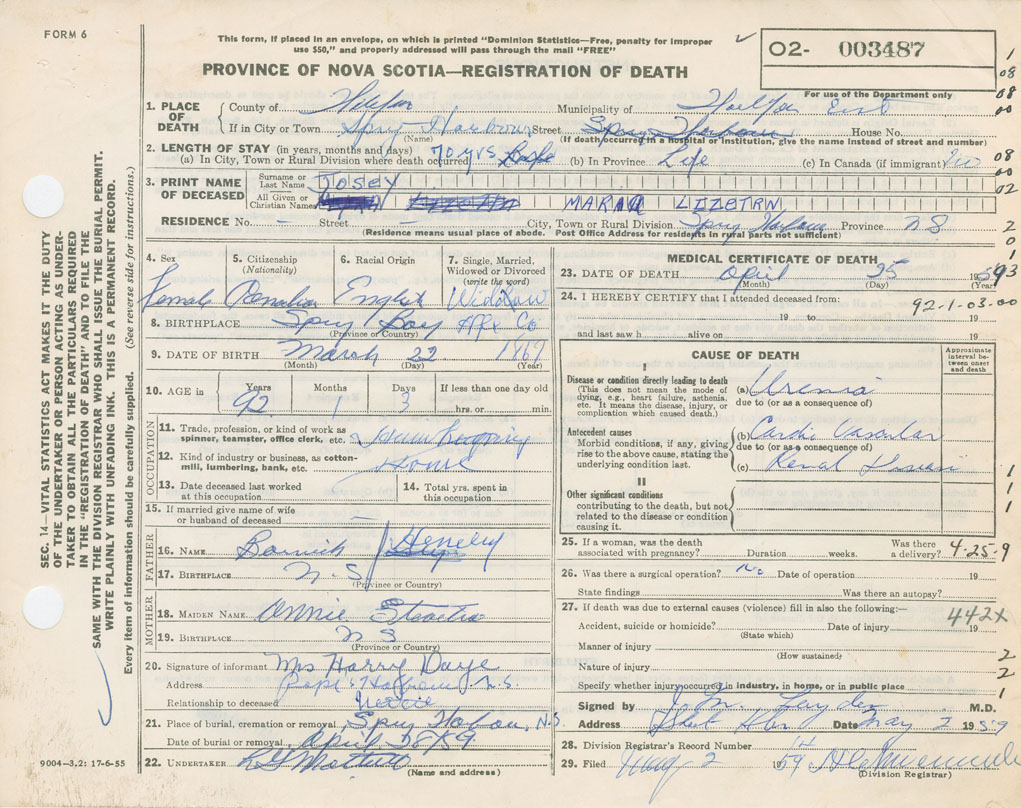 FORM 6
This form, if placed in an envelope, on which is printed "Dominion Statistics—Free, penalty for improper
use $50," and properly addressed will pass through the mail "FREE"
PROVINCE OF NOVA SCOTIA—REGISTRATION OF DEATH
O2- 003487
For use of the Department only
1. PLACE OF DEATH
County of Halifax Municipality of Halifax East
If in City or Town Spry Harbour Street Spry Harbour House No.
(Name) (If death occurred in a hospital or institution, give the name instead of street and number)
2. LENGTH OF STAY (in years, months and days)
(a) In City, Town or Rural Division where death occurred 70 yrs (b) In Province Life (c) In Canada (if immigrant)
3. PRINT NAME OF DECEASED
Surname or Last Name JOSEY
All Given or Christian Names MARIA
RESIDENCE No. – Street – City, Town or Rural Division Spry Harbour Province NS
(Residence means usual place of abode. Post Office Address for residents in rural parts not sufficient)
4. Sex
Female
5. Citizenship
(Nationality)
Canadian
6. Racial Origin
English
7. Single, Married,
Widowed or Divorced
(write the word)
Widow
8. BIRTHPLACE Spry Bay Hfx Co
(Province or Country)
9. DATE OF BIRTH March 22 1867
(Month) (Day) (Year)
10. AGE in
Years Months Days If less than one day old
92 1 3 hrs. or min.
OCCUPATION
11. Trade, profession, or kind of work as
spinner, teamster, office clerk, etc.
12. Kind of industry or business, as cotton-
mill, lumbering, bank, etc. Home
13. Date deceased last worked
at this occupation
14. Total yrs. spent in
this occupation
15. If married give name of wife
or husband of deceased –
FATHER
16. NAME Henley
17. BIRTHPLACE N.S
(Province or Country)
MOTHER
18. MAIDEN NAME Annie
19. BIRTHPLACE N S
(Province or Country)
20. Signature of informant Mrs Harry
Address N.S.
Relationship to deceased
21. Place of burial, cremation or removal Spry Harbour, N.S.
Date of burial or removal April 28/59
22. UNDERTAKER
(Name and address)
MEDICAL CERTIFICATE OF DEATH
23. DATE OF DEATH April 25 1959
(Month) (Day) (Year)
24. I HEREBY CERTIFY that I attended deceased from:
92-1-03-00
19 to 19
and last saw h alive on 19
CAUSE OF DEATH
Approximate
interval be-
tween onset
and death
I
Disease or condition directly leading to death
(This does not mean the mode of
dying, e.g., heart failure, asthenia,
etc. It means the disease, injury, or
complication which caused death.)
(a) Uremia
due to (or as a consequence of)
Antecedent causes
Morbid conditions, if any, giving
rise to the above cause, stating the
underlying condition last.
(b) Cardio Vascular
due to (or as a consequence of)
(c) Renal Disease
II
Other significant conditions
contributing to the death, but not
related to the disease or condition
causing it.
25. If a woman, was the death
associated with pregnancy? Duration weeks. Was there
a delivery?
4-25-9
26. Was there a surgical operation? No Date of operation 19
State findings Was there an autopsy?
27. If death was due to external causes (violence) fill in also the following:—
442X
Accident, suicide or homicide? Date of injury 19
(State which)
Manner of injury
(How sustained)
Nature of injury
Specify whether injury occurred in industry, in home, or in public place
Signed by M.D.
Address Date May 2 1959
28. Division Registrar's Record Number 14
29. Filed May 2 1959
(Division Registrar)
SEC. 14—VITAL STATISTICS ACT MAKES IT THE DUTY
OF THE UNDERTAKER OR PERSON ACTING AS UNDER-
TAKER TO OBTAIN ALL THE PARTICULARS REQUIRED
IN THE "REGISTRATION OF DEATH" AND TO FILE THE
SAME WITH THE DIVISION REGISTRAR WHO SHALL ISSUE THE BURIAL PERMIT.
WRITE PLAINLY WITH UNFADING INK. THIS IS A PERMANENT RECORD.
Every item of information should be carefully supplied. (See reverse side for instructions.)
9004—3,2: 17-6-55
1
08
08
00
08
00
02
2
0
1
93
1
1
1
2
2
1